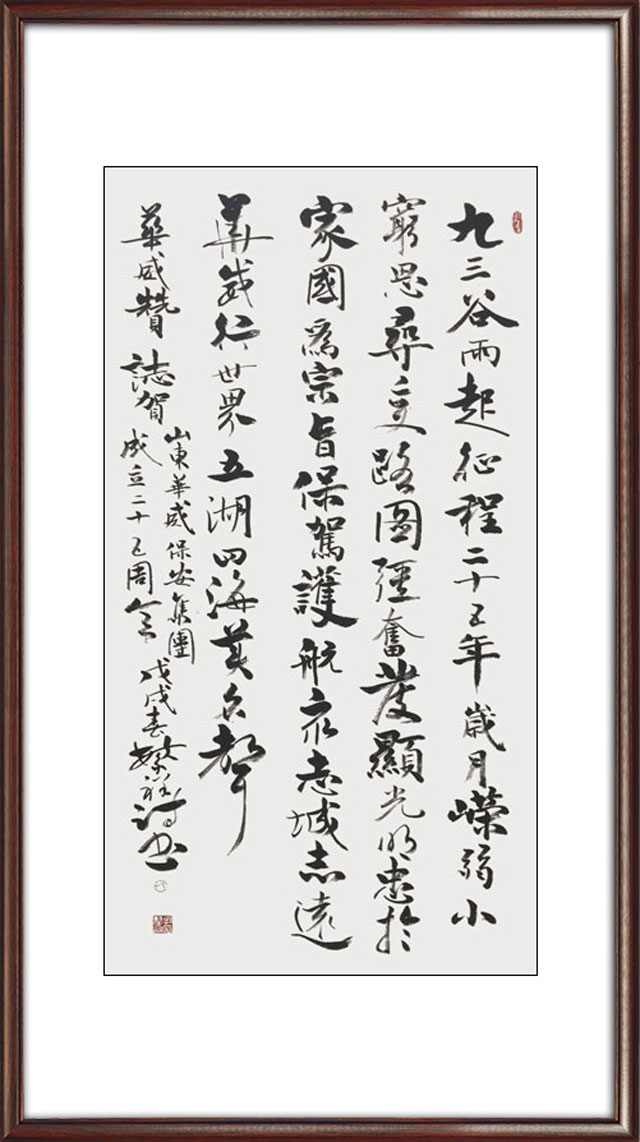 九三谷雨起征程二十五年歲月嶸弱小
窮思尋变路圖彊奮發顯光明忠於
家國爲宗旨保駕護航衆志城志遠
華威行世界五湖四海美名聲
華威贊 誌賀
山東華威保安集團
成立二十五周年 戊戌春繁祥诗书